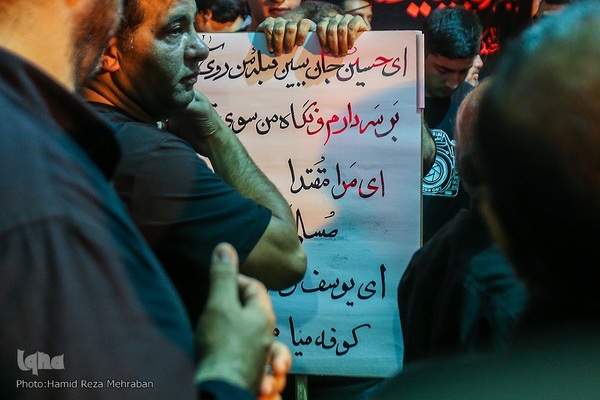 ای حسین جان ببین قبله من روی
بر سر دارم و نگاه من سوی
ای مرا مقتدا
ای یوسف
کوفه میا
iqna
Photo:Hamid Reza Mehraban